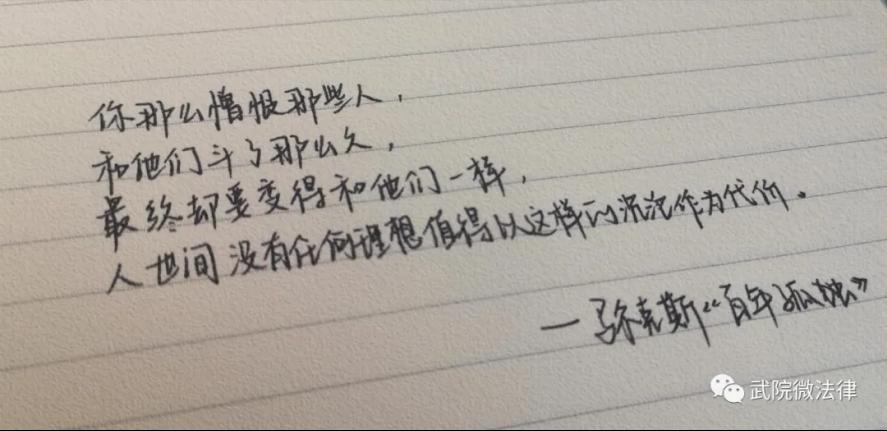 你那么憎恨那些人，
和他们斗了那么久，
最终却要变得和他们一样，
人世间没有任何理想值得以这样的沉沦作为代价。
—马尔克斯“百年孤独”
武院微法律